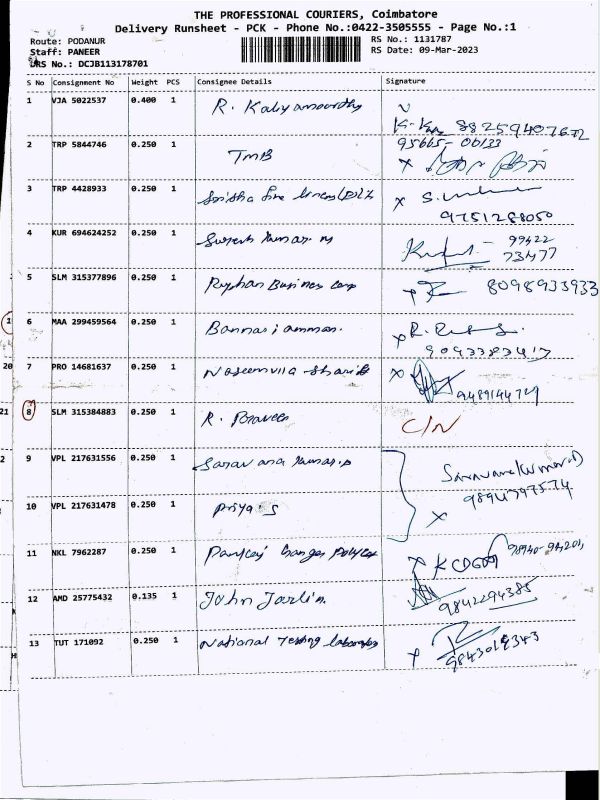 THE PROFESSIONAL COURIERS, Coimbatore
Delivery Runsheet - PCK - Phone No.:0422-3505555 - Page No.:1
Route: PODANUR
RS No.: 1131787
Staff: PANEER
RS Date: 09-Mar-2023
URS No.: DCJB113178701
S No Consignment No Weight PCS Consignee Details Signature
1 VJA 5022537 0.400 1 R. Kaliyamoorthy
2 TRP 5844746 0.250 1 TMB 95665-00133
3 TRP 4428933 0.250 1 9751288050
4 KUR 694624252 0.250 1 Suresh Kumar. M 99422
73477
5 SLM 315377896 0.250 1 Rayhan Business Corp 8098933933
1 6 MAA 299459564 0.250 1 Bannari amman.
20 7 PRO 14681637 0.250 1 9489144729
21 8 SLM 315384883 0.250 1 R. Praveen C/N
2 9 VPL 217631556 0.250 1 Saravana Kumar.P
10 VPL 217631478 0.250 1 Priya S 9894797574
11 NKL 7962287 0.250 1
12 AMD 25775432 0.135 1 John Joslin. 9842294385
13 TUT 171092 0.250 1 National Testing laboratory 9843019343